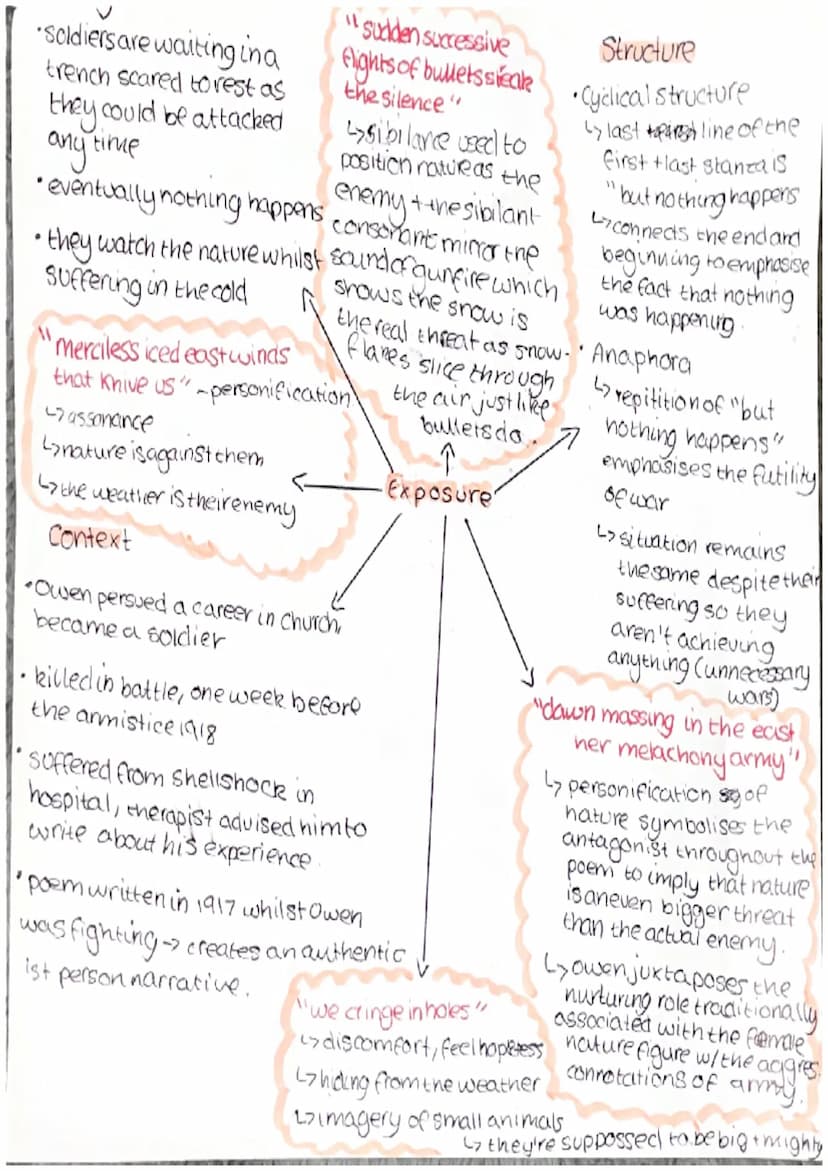 •soldiers are waiting in a
trench scared to rest as
they could be attacked
any time
•eventually nothing happens
•they watch the nature whilst
suffering in the cold
"sudden successive
flights of bullets streak
the silence"
↳sibilance used to
position nature as the
enemy + the sibilant
consonant mirror the
sound of gunfire which
shows the snow is
the real threat as snow-
flakes slice through
the air just like
bullets do.
Structure
•Cyclical structure
↳last line of the
first + last stanza is
"but nothing happens
↳connects the end and
beginning to emphasise
the fact that nothing
was happening.
• Anaphora
↳repitition of "but
nothing happens"
emphasises the futility
of war
↳situation remains
the same despite their
suffering so they
aren't achieving
anything (unnecessary
wars)
"merciless iced east winds
that knive us" ~personification
↳assonance
↳nature is against them
↳the weather is their enemy
Exposure
Context
•Owen persued a career in church,
became a soldier
•killed in battle, one week before
the armistice 1918
•suffered from shellshock in
hospital, therapist advised him to
write about his experience.
•poem written in 1917 whilst Owen
was fighting → creates an authentic
1st person narrative.
"dawn massing in the east
her melachony army"
↳personification of
nature symbolises the
antagonist throughout the
poem to imply that nature
is an even bigger threat
than the actual enemy.
↳owen juxtaposes the
nurturing role traditionally
associated with the female
nature figure w/ the aggres
connotations of army.
"we cringe in holes"
↳discomfort, feel hopeless
↳hiding from the weather
↳imagery of small animals
↳they're suppossed to be big + mighty